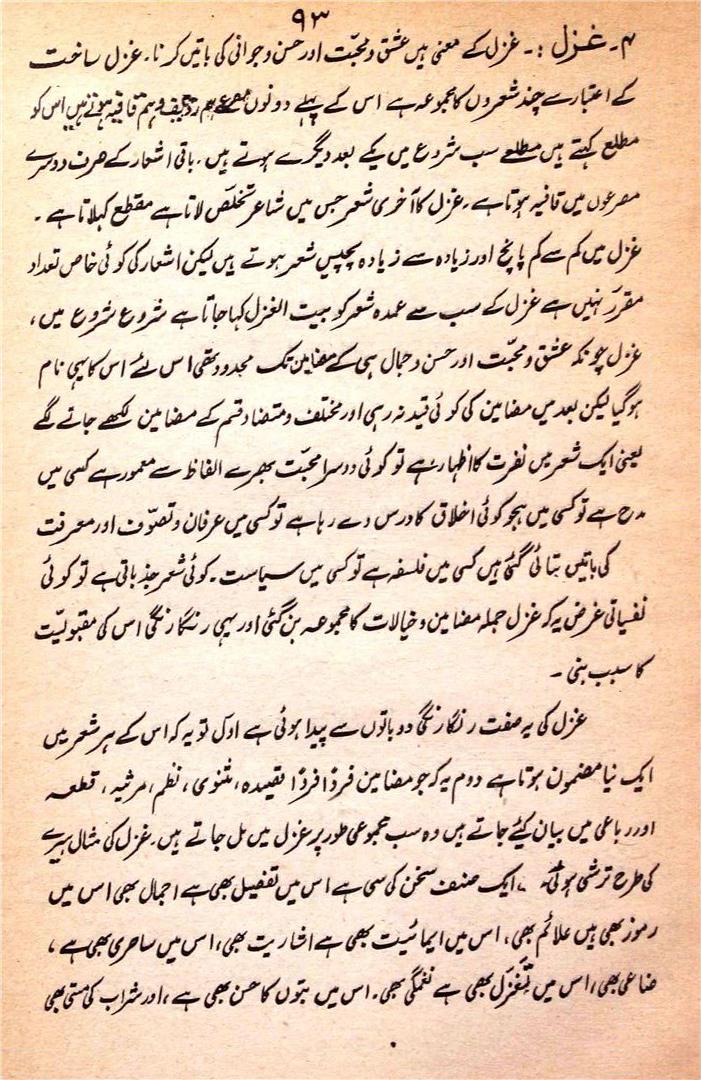 ۹۳
۴۔ غزل :۔ غزل کے معنی ہیں عشق و محبّت اور حسن و جوانی کی باتیں کرنا۔ غزل ساخت
کے اعتبار سے چند شعروں کا مجموعہ ہے اس کے پہلے دونوں مصرعے ہم ردیف و ہم قافیہ ہوتے ہیں اس کو
مطلع کہتے ہیں مطلعے سب شروع میں یکے بعد دیگرے ہوتے ہیں۔ باقی اشعار کے صرف دوسرے
مصرعوں میں قافیہ ہوتا ہے۔ غزل کا آخری شعر جس میں شاعر تخلّص لاتا ہے مقطع کہلاتا ہے۔
غزل میں کم سے کم پانچ اور زیادہ سے زیادہ پچیس شعر ہوتے ہیں لیکن اشعار کی کوئی خاص تعداد
مقرّر نہیں ہے غزل کے سب سے عمدہ شعر کو بیت الغزل کہا جاتا ہے شروع شروع میں،
غزل چونکہ عشق و محبّت اور حسن و جمال ہی کے مضامین تک محدود تھی اس لئے اس کا یہی نام
ہو گیا لیکن بعد میں مضامین کی کوئی قید نہ رہی اور مختلف و متضاد قسم کے مضامین لکھے جانے لگے
یعنی ایک شعر میں نفرت کا اظہار ہے تو کوئی دوسرا محبّت بھرے الفاظ سے معمور ہے کسی میں
مدح ہے تو کسی میں ہجو کوئی اخلاق کا درس دے رہا ہے تو کسی میں عرفان و تصوّف اور معرفت
کی باتیں بتائی گئی ہیں کسی میں فلسفہ ہے تو کسی میں سیاست۔ کوئی شعر جذباتی ہے تو کوئی
نفسیاتی غرض یہ کہ غزل جملہ مضامین و خیالات کا مجموعہ بن گئی اور یہی رنگا رنگی اس کی مقبولیّت
کا سبب بنی ۔
غزل کی یہ صفت رنگا رنگی دو باتوں سے پیدا ہوئی ہے اوّل تو یہ کہ اس کے ہر شعر میں
ایک نیا مضمون ہوتا ہے دوم یہ کہ جو مضامین فرداً فرداً قصیدہ، مثنوی، نظم، مرثیہ، قطعہ
اور رباعی میں بیان کئے جاتے ہیں وہ سب مجموعی طور پر غزل میں مل جاتے ہیں۔ غزل کی مثال ہیرے
کی طرح ترشی ہوئی، ایک صنف سخن کی سی ہے اس میں تفصیل بھی ہے اجمال بھی اس میں
رموز بھی ہیں علائم بھی، اس میں ایمائیت بھی ہے اشاریت بھی، اس میں ساحری بھی ہے،
صناعی بھی، اس میں تغزّل بھی ہے نغمگی بھی۔ اس میں بتوں کا حسن بھی ہے، اور شراب کی مستی بھی